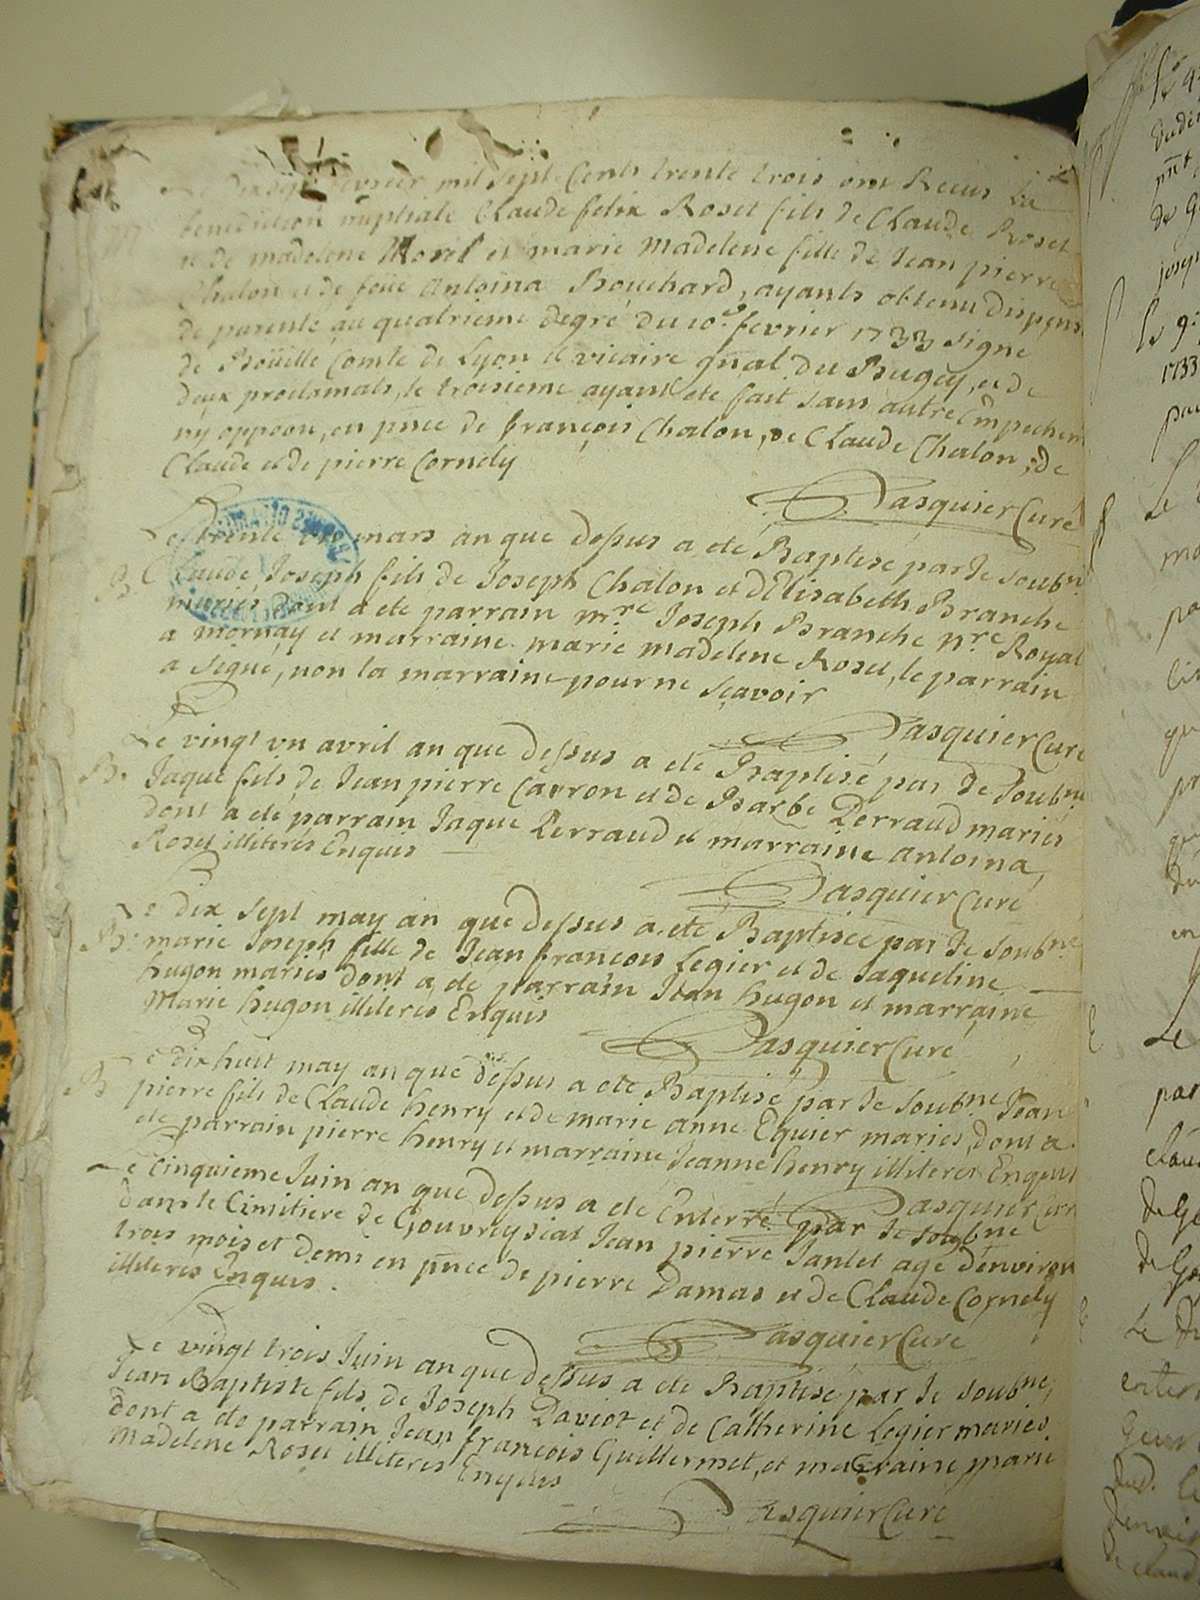 Le dixsept fevrier mil sept Cents trente trois ont Recus La
benediction nuptiale Claude felix Roset fils de Claude Roset
et de madelene Morel et marie madelene fille de Jean pierre
Chalon et de foüe Antoina Bouchard, ayants obtenu dispens
de parenté au quatrieme degré du 10e fevrier 1733 signé
de Boüille Comte de Lyon et vicaire gnal du Bugey, et de
deux proclamats, le troisieme ayant eté fait sans autre Empechem
ny oppoon, en pnce de françois Chalon, de Claude Chalon, de
Claude et de pierre Cornely
Pasquier Curé
Le trente mars an que dessus a eté Baptisé par Je soubné
B Claude Joseph fils de Joseph Chalon et d'Elisabeth Branche
mariés dont a eté parrain mre Joseph Branche nre Royal
a mornay et marraine marie madelene Roset, le parrain
a signé, non la marraine pour ne sçavoir
Pasquier Curé
Le vingt vn avril an que dessus a eté Baptisé par Je soubné
B. Jaque fils de Jean pierre Carron et de Barbe Perraud mariés
dont a eté parrain Jaque Perraud et marraine antoina
Roset illiterés Enquis
Pasquier Curé
Le dix sept may an que dessus a eté Baptisée par Je soubné
B. marie Joseph fille de Jean françois Legier et de Jaqueline
hugon mariés dont a eté parrain Jean hugon et marraine
Marie hugon illiterés Enquis
Pasquier Curé
Le dixhuit may an que dessus a eté Baptisé par Je soubné Jean
B pierre fils de Claude henry et de marie anne Equier mariés, dont a
eté parrain pierre henry et marraine Jeanne henry illiterés Enquis
Pasquier Curé
Le Cinquieme Juin an que dessus a eté Enterré par Je soubné
dans le Cimitiere de Gouvreysiat Jean pierre Jantet agé d'environ
trois mois et demi en pnce de pierre Damas et de Claude Cornely
illiterés Enquis.
Pasquier Curé
Le vingt trois Juin an que dessus a eté Baptisé par Je soubné
Jean Baptiste fils de Joseph Daviot et de Catherine Legier mariés
dont a eté parrain Jean françois Guillermet, et marraine marie
Madelene Roset illiterés Enquis
Pasquier Curé